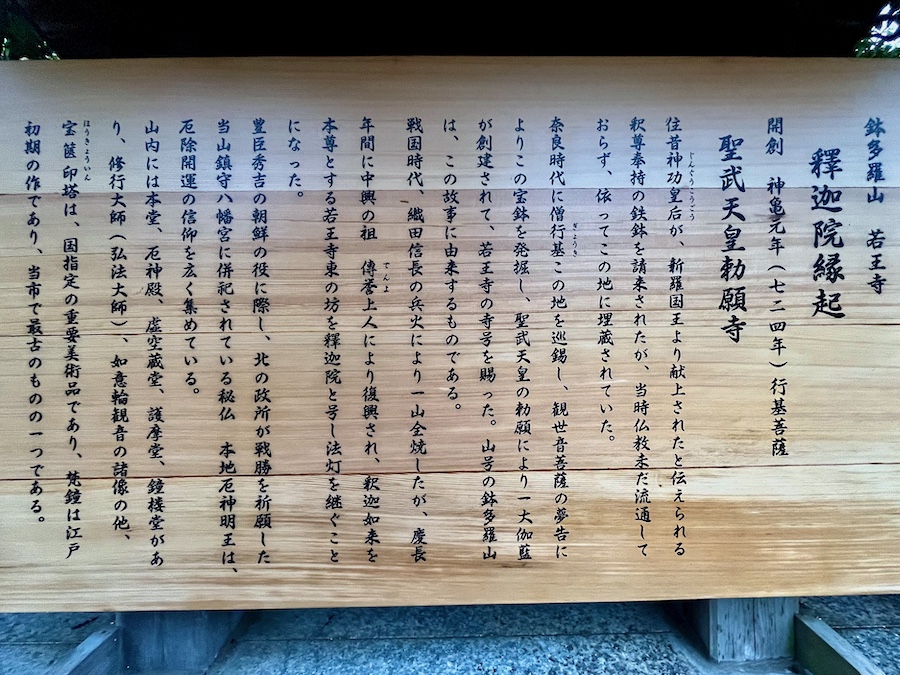 鉢多羅山　若王寺
釋迦院縁起
開創　神亀元年（七二四年）行基菩薩
聖武天皇勅願寺
住昔神功皇后が、新羅国王より献上されたと伝えられる
じんぐうこうごう
釈尊奉持の鉄鉢を請来されたが、当時仏教未だ流通して
おらず、依ってこの地に埋蔵されていた。
奈良時代に僧行基この地を巡錫し、観世音菩薩の夢告に
ぎょうき
よりこの宝鉢を発掘し、聖武天皇の勅願により一大伽藍
が創建されて、若王寺の寺号を賜った。山号の鉢多羅山
は、この故事に由来するものである。
戦国時代、織田信長の兵火により一山全焼したが、慶長
年間に中興の祖　傳誉上人により復興され、釈迦如来を
でんよ
本尊とする若王寺東の坊を釋迦院と号し法灯を継ぐこと
になった。
豊臣秀吉の朝鮮の役に際し、北の政所が戦勝を祈願した
当山鎮守八幡宮に併祀されている秘仏　本地厄神明王は、
厄除開運の信仰を広く集めている。
山内には本堂、厄神殿、虚空蔵堂、護摩堂、鐘楼堂があ
り、修行大師（弘法大師）、如意輪観音の諸像の他、
宝篋印塔は、国指定の重要美術品であり、梵鐘は江戸
ほうきょういん
初期の作であり、当市で最古のものの一つである。